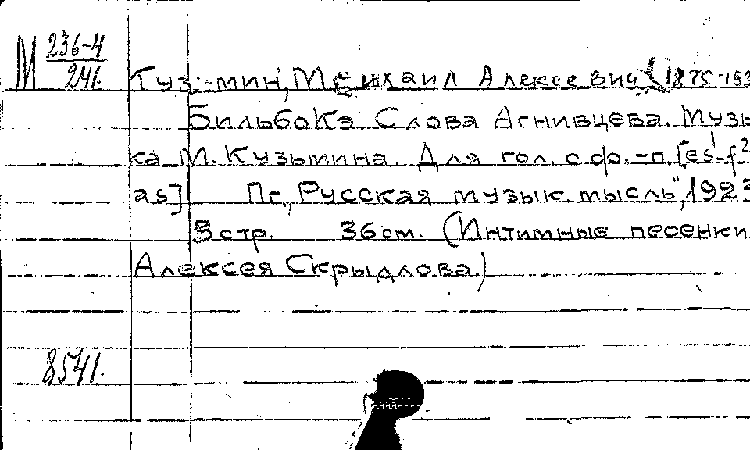 М 236-4
241.
Кузьмин, Михаил Алексеевич (1875-193
Бильбокэ Слова Агнивцева. Музы-
ка М. Кузьмина. Для гол. с ф.-п. [es¹-f²
as] Пг., "Русская музык. мысль", 1923
3 стр. 36 см. (Интимные песенки
Алексея Скрыдлова.)
8541.